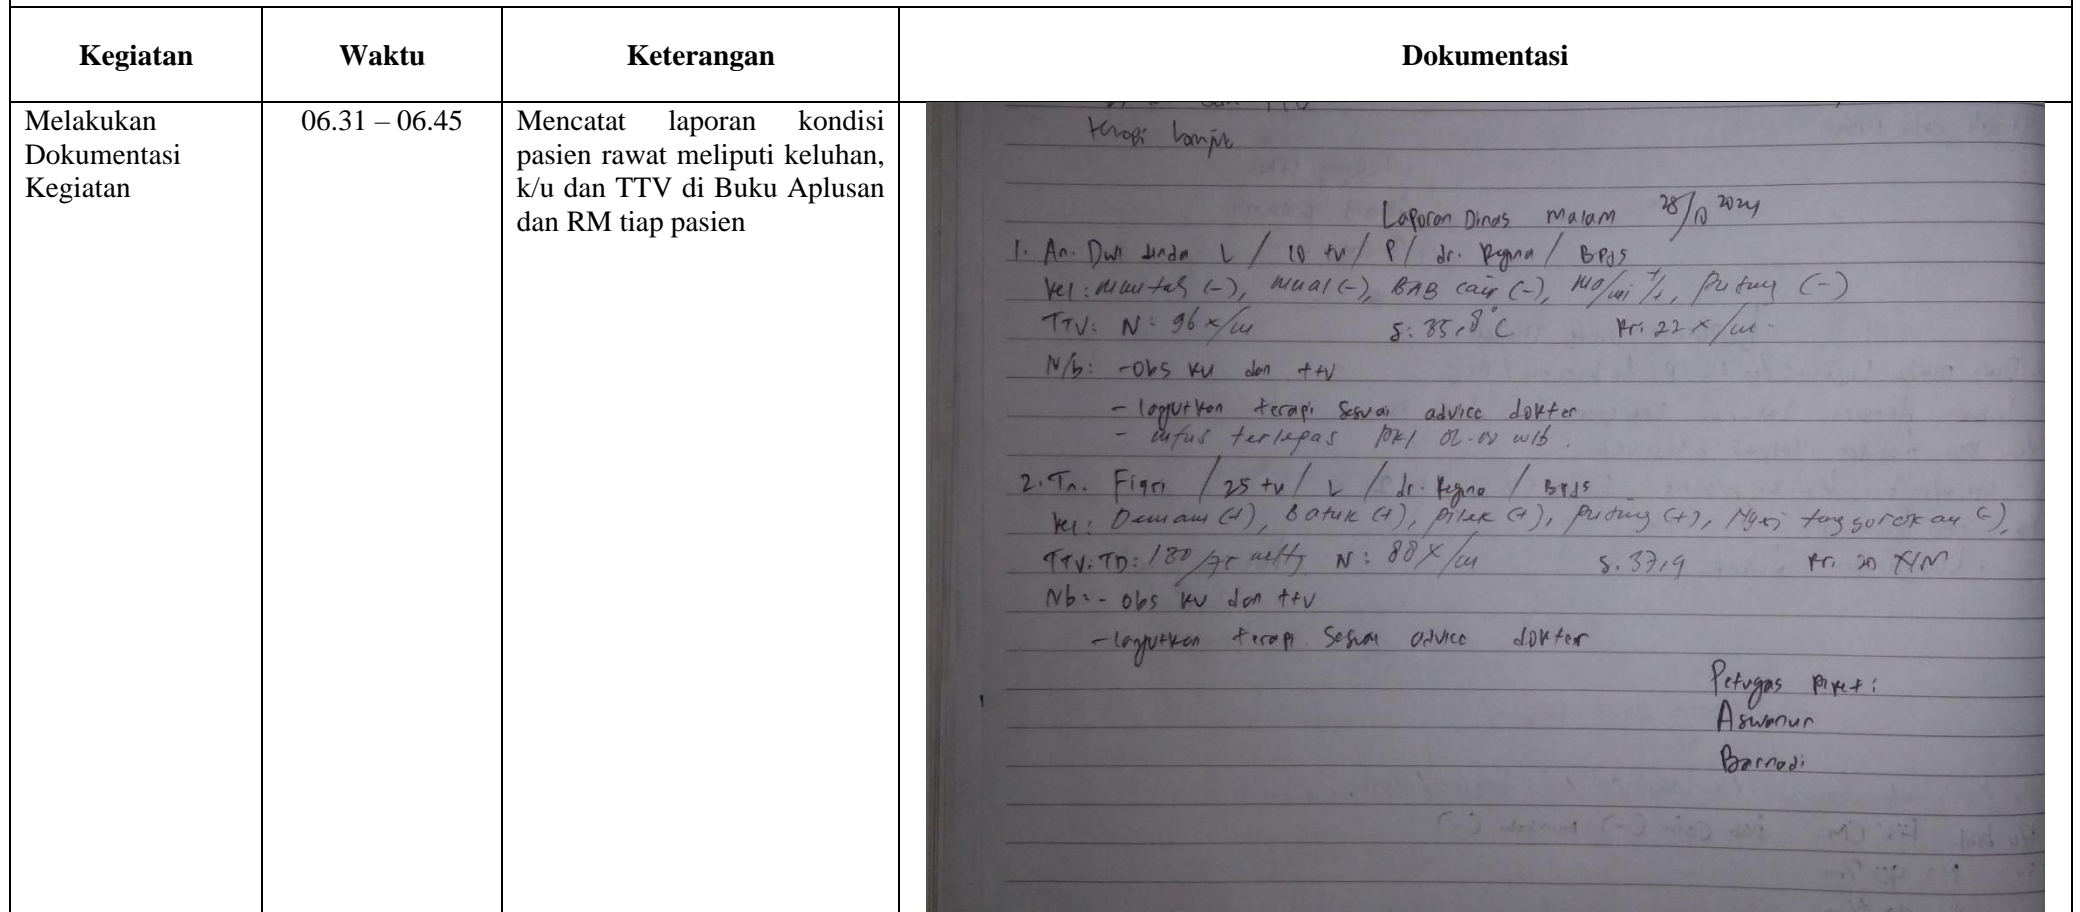 Kegiatan Waktu Keterangan Dokumentasi
Melakukan
Dokumentasi
Kegiatan
06.31 – 06.45
Mencatat laporan kondisi
pasien rawat meliputi keluhan,
k/u dan TTV di Buku Aplusan
dan RM tiap pasien
terapi lanjut
Laporan Dinas malam 28/10 2024
1. An. Dwi dinda L / 10 tu / P / dr. Regina / BPJS
kel: muntah (-), mual (-), BAB cair (-), Pusing (-)
TTV: N: 96 x/m S: 35,8°C RR: 22 x/m
N/b: - obs ku dan ttv
- lanjutkan terapi sesuai advice dokter
- infus terlepas pkl wib.
2. Tn. Fiqri / 25 tu / L / dr. Regina / BPJS
kel: Demam (+), Batuk (+), pilek (+), pusing (+), Nyeri tenggorokan (-),
TTV: TD: N: 88 x/m S. 37,9 RR: 20 x/M
Nb: - obs ku dan ttv
- lanjutkan terapi sesuai advice dokter
Petugas piket:
Aswanur
Barnadi